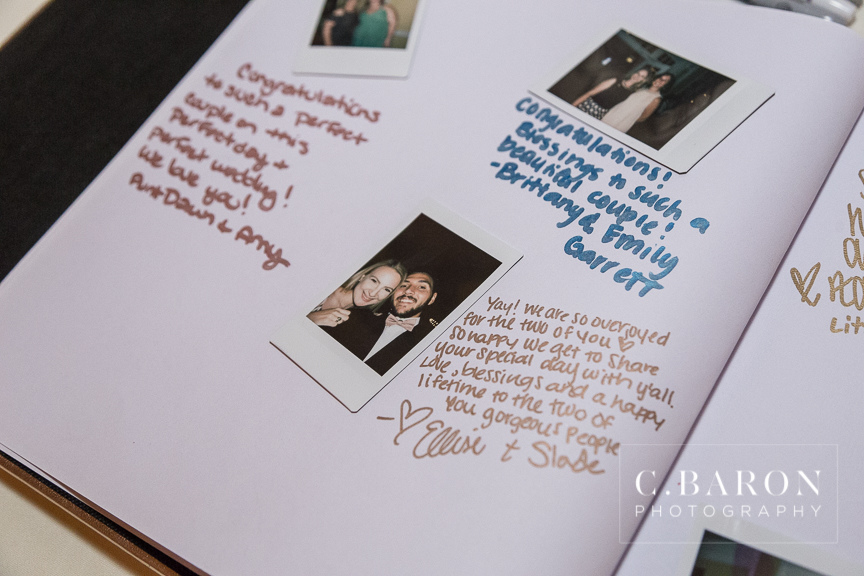 Congratulations
to such a perfect
couple on this
perfect day +
perfect wedding!
We love you!
Aunt Dawn + Amy
Congratulations!
Blessings to such a
beautiful couple!
-Brittany & Emily
Garrett
Yay! We are so overjoyed
for the two of you ♡
so happy we get to share
your special day with y'all.
Love, blessings and a happy
lifetime to the two of
you gorgeous people
-♡ Ellise + Slade
C. BARON
PHOTOGRAPHY